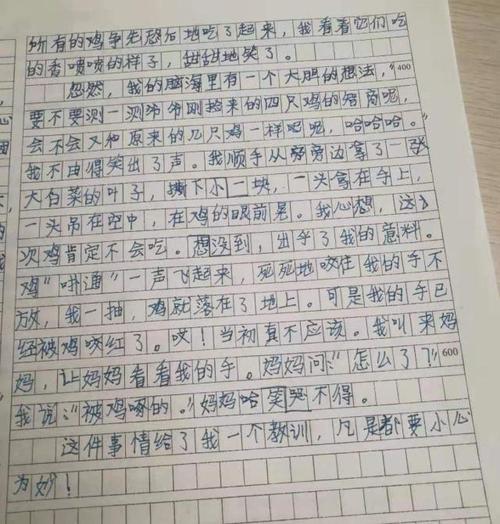 所有的鸡争先恐后地吃了起来，我看看它们吃
的香喷喷的样子，甜甜地笑了。
忽然，我的脑海里有一个大胆的想法，“
400
要不要测一测爷爷刚捡来的四只鸡的智商呢，
会不会又和原来的几只鸡一样呢呢，哈哈哈。”
我不由得笑出了声。我顺手从旁旁边拿了一张
大白菜的叶子，撕下小一块，一头拿在手上，
一头吊在空中，在鸡的眼前晃。我心想，这
次鸡肯定不会吃。想没到，出乎了我的意料。
鸡“哄通”一声飞起来，死死地咬住我的手不
放，我一抽，鸡就落在了地上。可是我的手已
经被鸡咬红了。哎！当初真不应该。我叫来妈
妈，让妈妈看看我的手。妈妈问：“怎么了？”
600
我说：“被鸡啄的。”妈妈哈笑哭不得。
这件事情给了我一个教训，凡是都要小心
为妙！